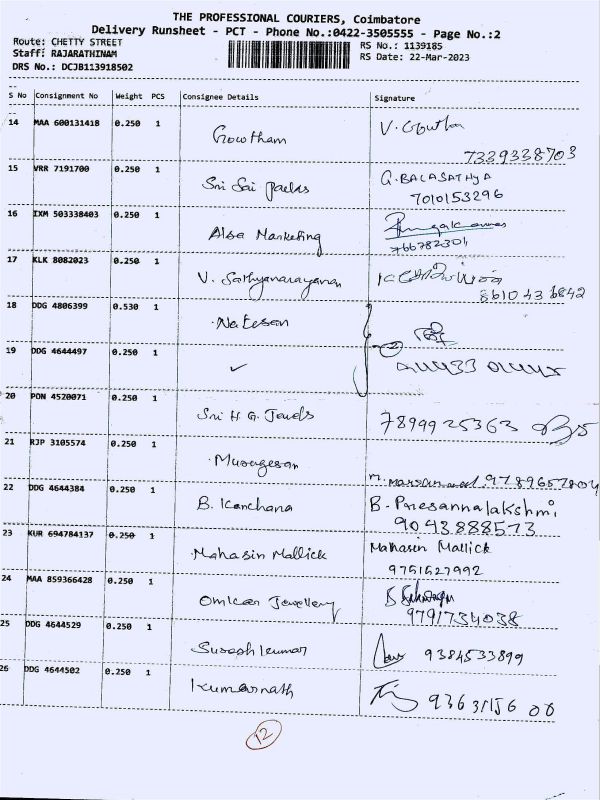 THE PROFESSIONAL COURIERS, Coimbatore
Delivery Runsheet - PCT - Phone No.:0422-3505555 - Page No.:2
Route: CHETTY STREET
RS No.: 1139185
Staff: RAJARATHINAM
RS Date: 22-Mar-2023
DRS No.: DCJB113918502
S No Consignment No Weight PCS Consignee Details Signature
14 MAA 600131418 0.250 1 Gowtham V. Gowtham
7339338703
15 VRR 7191700 0.250 1 Sri Sai Jaelas G. BALASATHYA
7010153296
16 IXM 503338403 0.250 1 Alba Marketing
766782301
17 KLK 8082023 0.250 1 V. Sathyanarayanan
8610436842
18 DDG 4806399 0.530 1 Natesan
19 DDG 4644497 0.250 1 ✓ 2
20 PON 4520071 0.250 1 Sri H.G. Jewels 7899925363
21 RJP 3105574 0.250 1 Murugesan
9789657804
22 DDG 4644384 0.250 1 B. Kanchana B. Paresannalakshmi
9043888573
23 KUR 694784137 0.250 1 Mahasin Mallick Mahasin Mallick
9751527992
24 MAA 859366428 0.250 1 Omkar Jewellery
9791734038
25 DDG 4644529 0.250 1 Sureshkumar 9384533899
26 DDG 4644502 0.250 1 Kumarnath
12